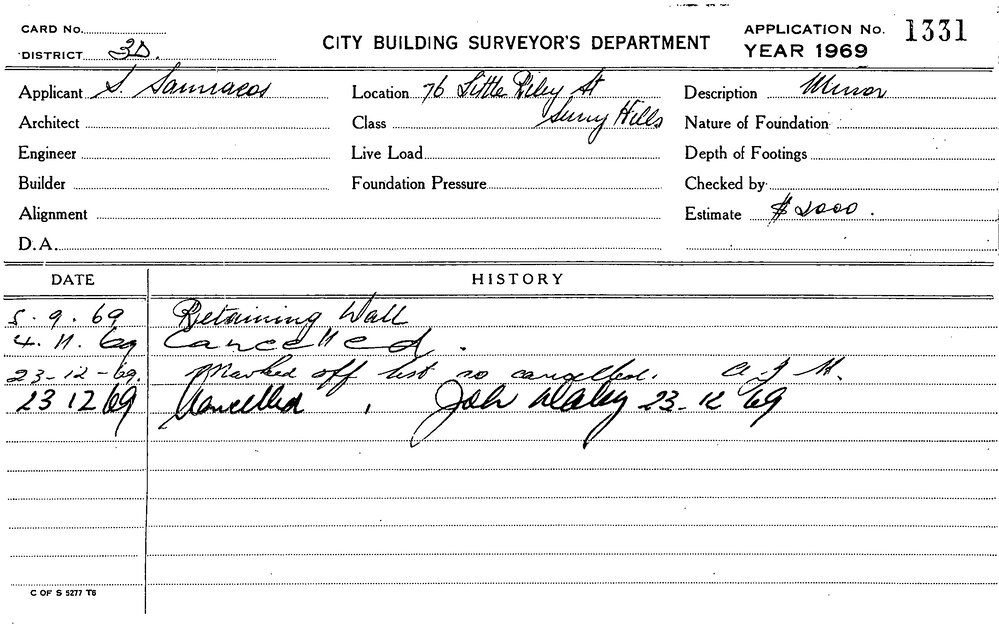 CARD No.
DISTRICT 3D.
CITY BUILDING SURVEYOR'S DEPARTMENT
APPLICATION No. 1331
YEAR 1969
Applicant S.
Location 76 Little Riley St
Surry Hills
Description Minor
Architect
Class
Nature of Foundation
Engineer
Live Load
Depth of Footings
Builder
Foundation Pressure
Checked by
Alignment
Estimate $2000.
D.A.
DATE HISTORY
5.9.69 Retaining Wall
4.11.69 Cancelled.
23-12-69. Marked off list as cancelled.
23 12 69 Cancelled, 23-12 69
C OF S 5277 T6